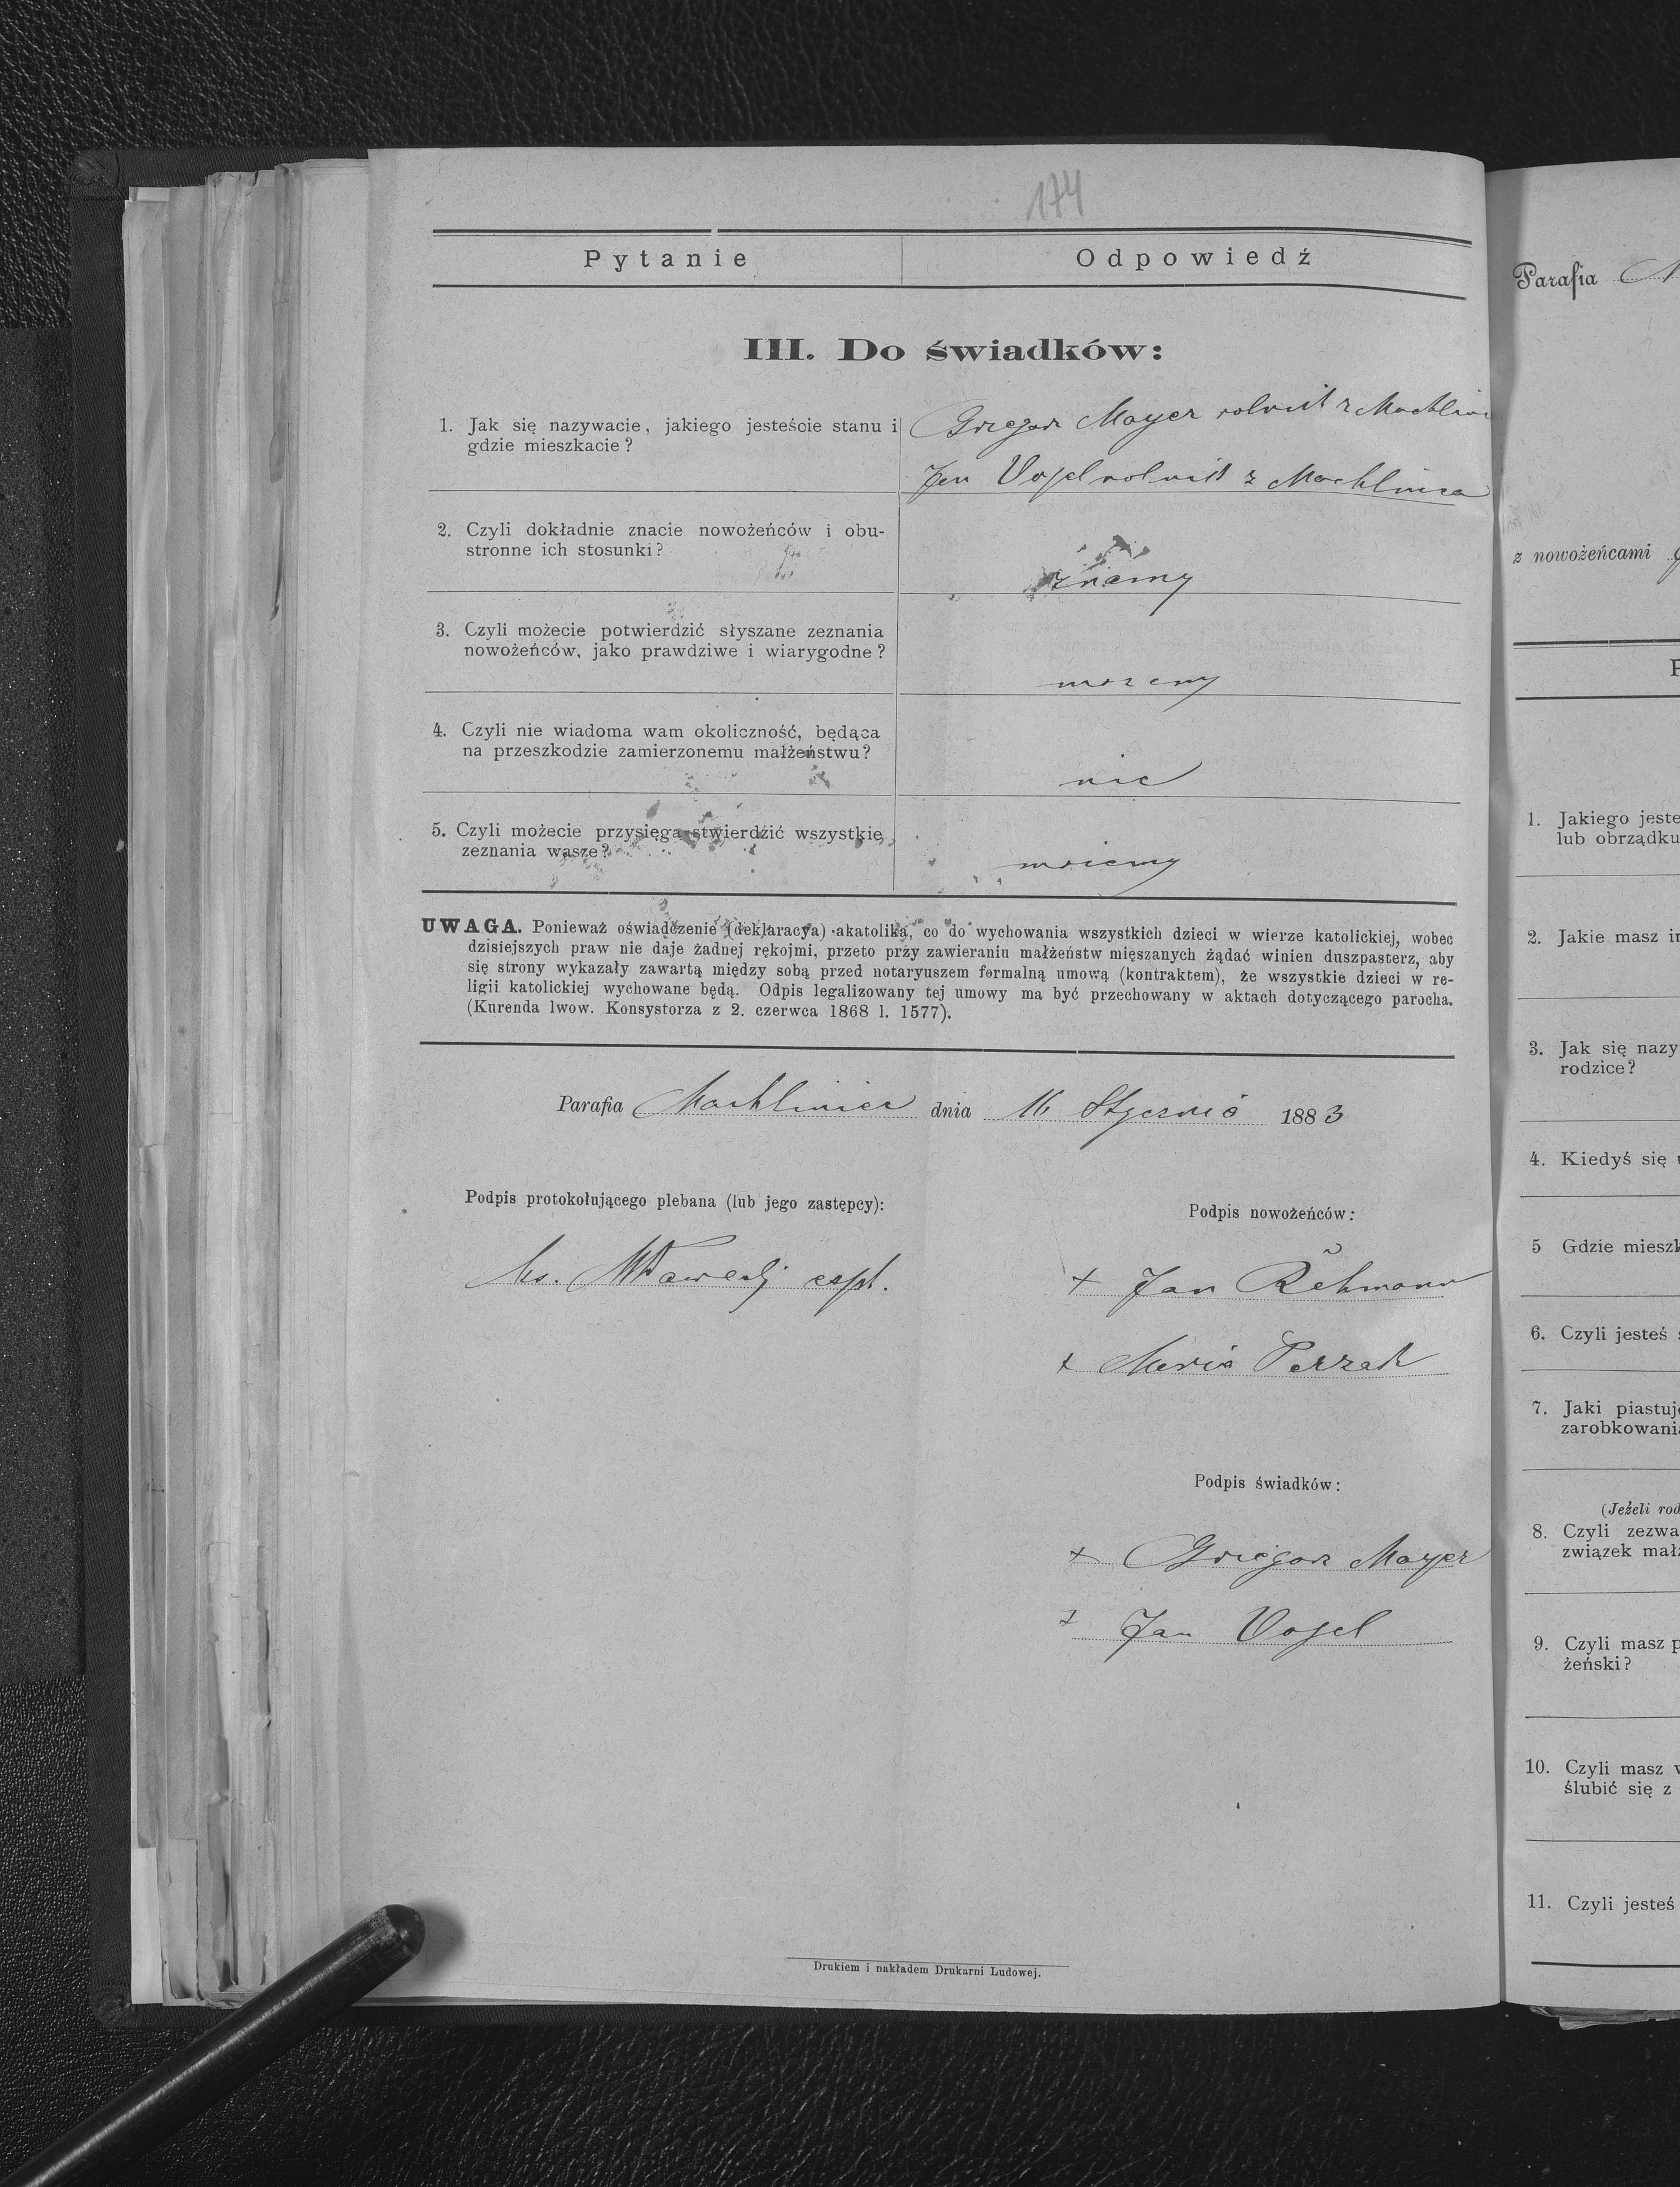 174
Pytanie Odpowiedź
III. Do świadków:
1. Jak się nazywacie, jakiego jesteście stanu i
gdzie mieszkacie?
Grzegorz Mayer rolnik z
Jan Vogel rolnik z Machlińca
2. Czyli dokładnie znacie nowożeńców i obu-
stronne ich stosunki?
znamy
3. Czyli możecie potwierdzić słyszane zeznania
nowożeńców, jako prawdziwe i wiarygodne?
możemy
4. Czyli nie wiadoma wam okoliczność, będąca
na przeszkodzie zamierzonemu małżeństwu?
nie
5. Czyli możecie przysięgą stwierdzić wszystkie
zeznania wasze?
możemy
UWAGA. Ponieważ oświadczenie (deklaracya) akatolika, co do wychowania wszystkich dzieci w wierze katolickiej, wobec
dzisiejszych praw nie daje żadnej rękojmi, przeto przy zawieraniu małżeństw mięszanych żądać winien duszpasterz, aby
się strony wykazały zawartą między sobą przed notaryuszem formalną umową (kontraktem), że wszystkie dzieci w re-
ligii katolickiej wychowane będą. Odpis legalizowany tej umowy ma być przechowany w aktach dotyczącego parocha.
(Kurenda lwow. Konsystorza z 2. czerwca 1868 l. 1577).
Parafia Machliniec dnia 16 Stycznia 1883
Podpis protokołującego plebana (lub jego zastępcy):
Ks.
Podpis nowożeńców:
+ Jan Rehmann
+ Maria Perzak
Podpis świadków:
+ Grzegorz Mayer
+ Jan Vogel
Drukiem i nakładem Drukarni Ludowej.
Parafia
z nowożeńcami
1. Jakiego jeste
lub obrządku
2. Jakie masz
3. Jak się nazy
rodzice?
4. Kiedyś się
5 Gdzie mieszk
6. Czyli jesteś
7. Jaki piastuj
zarobkowani
(Jeżeli rod
8. Czyli zezwa
związek mał
9. Czyli masz p
żeński?
10. Czyli masz
ślubić się z
11. Czyli jesteś